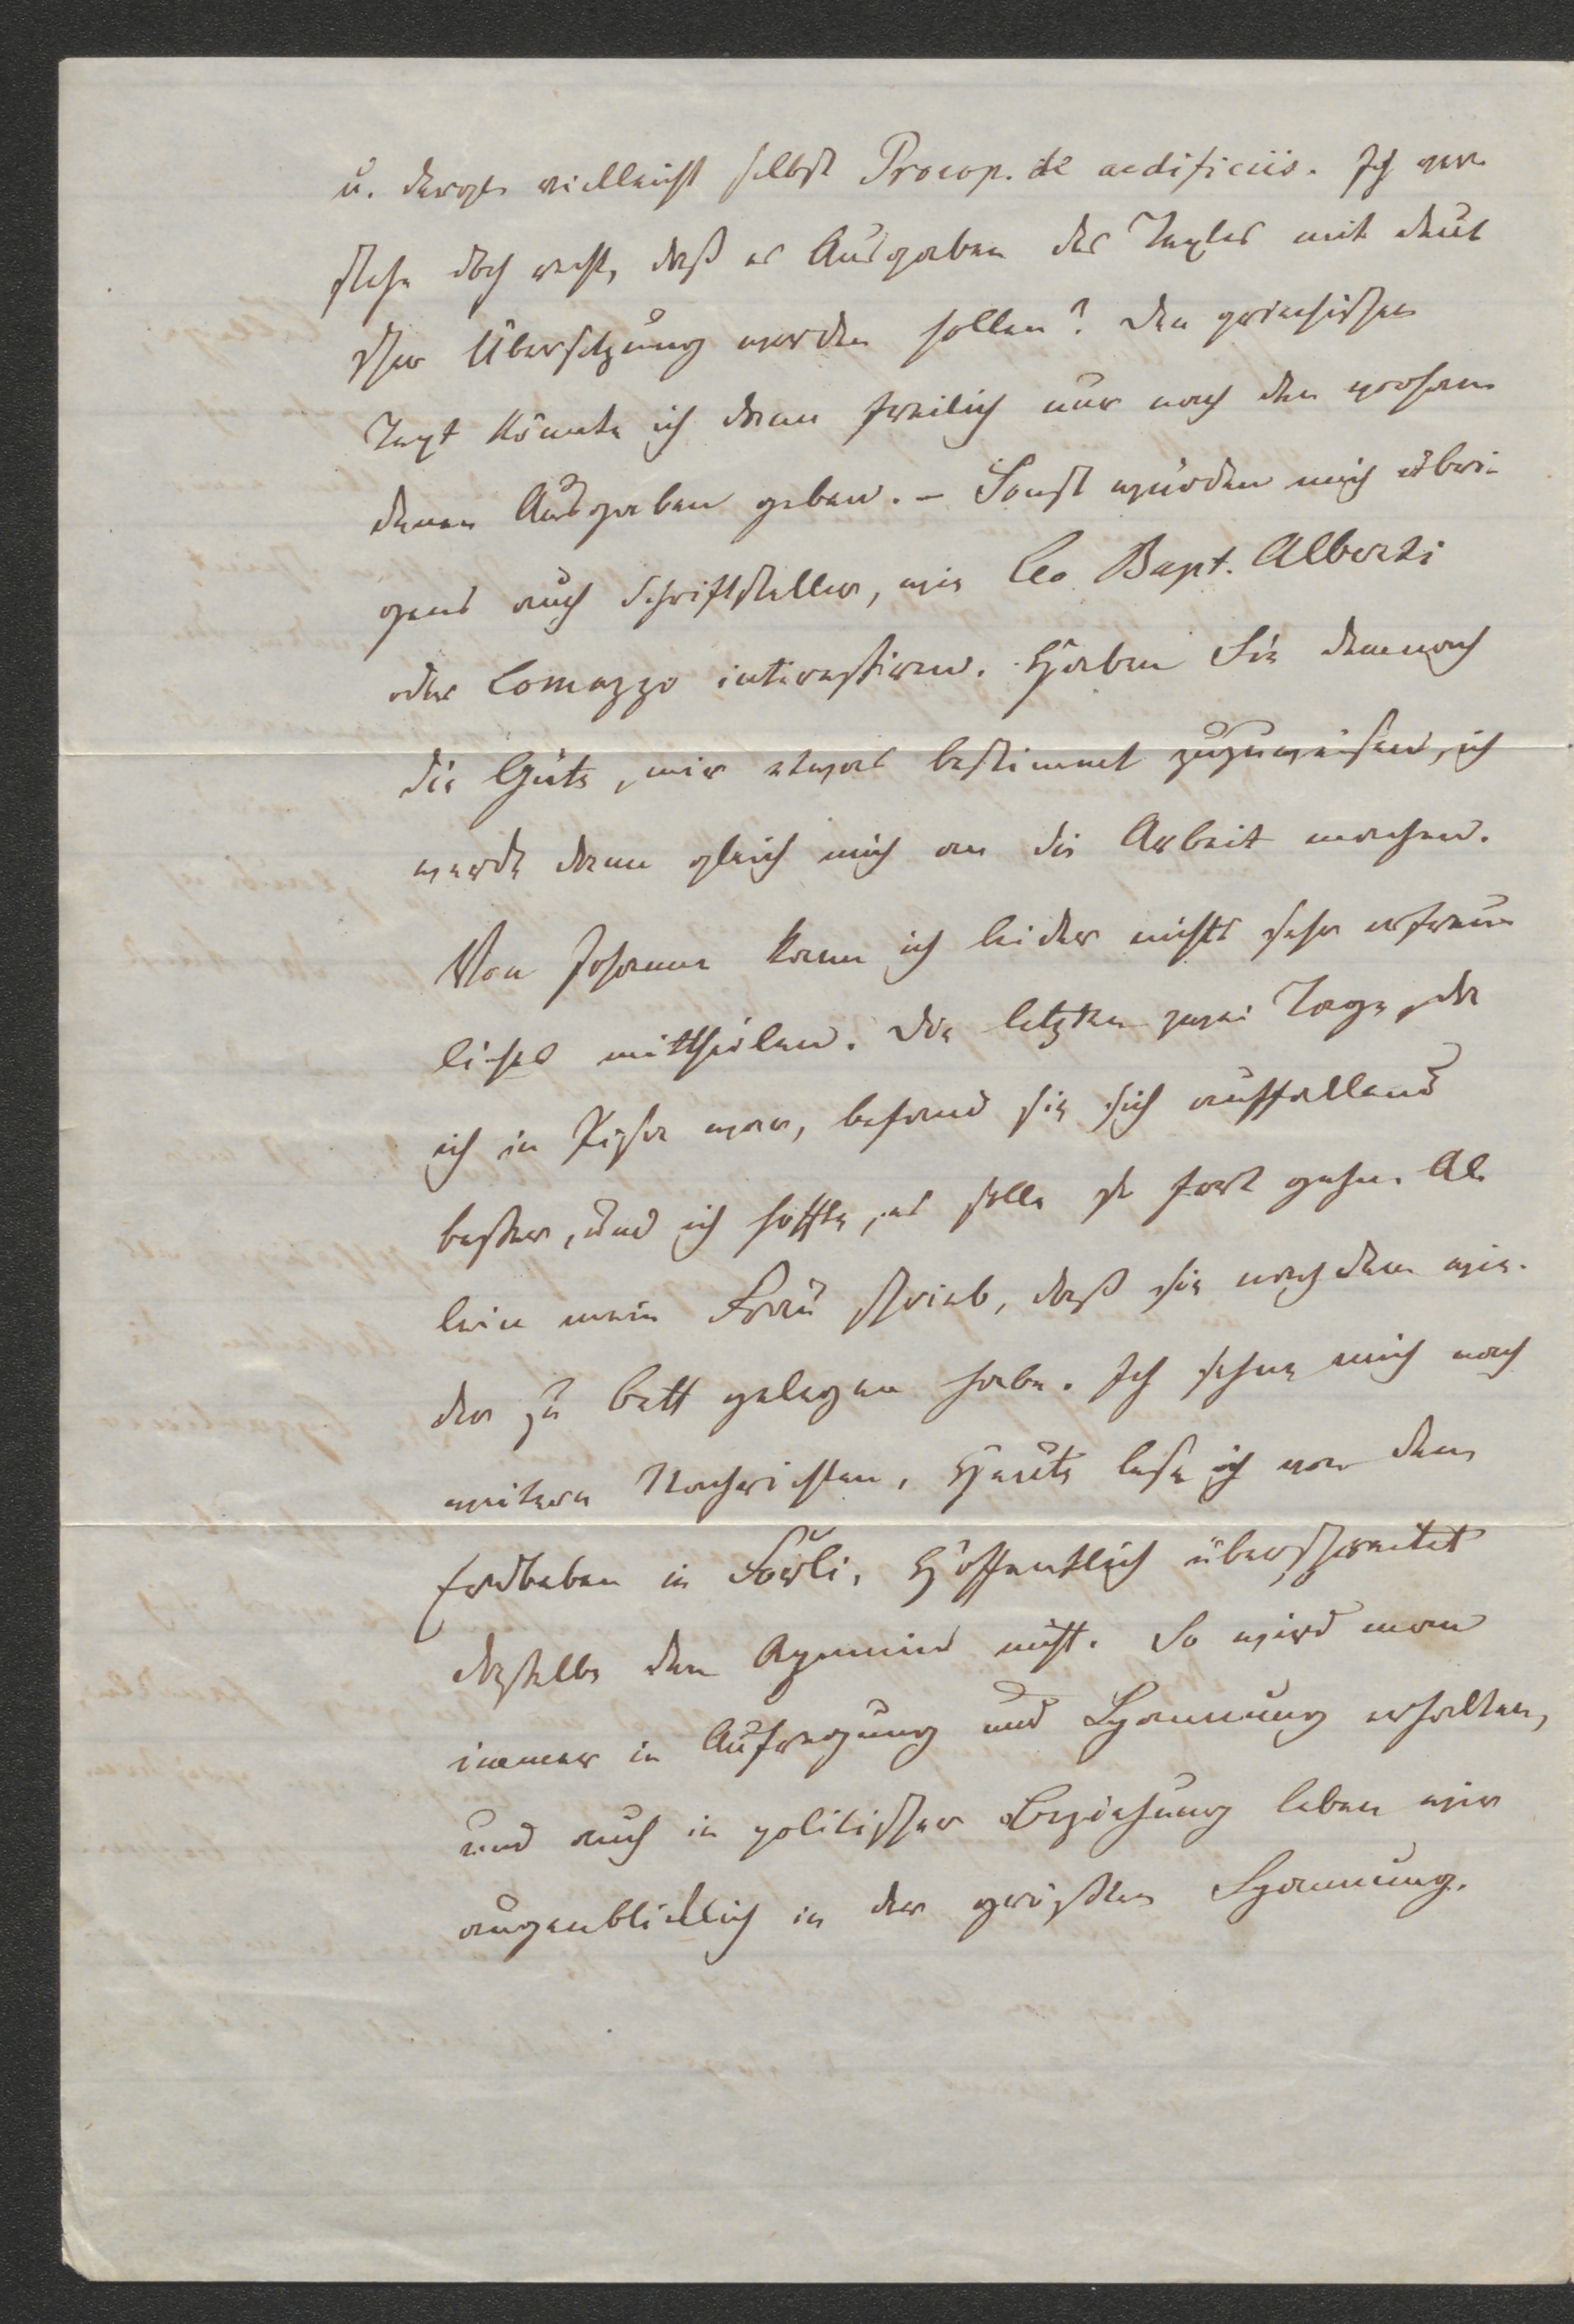 u. dergl. vielleicht selbst Procop. de aedificiis. Ich ver
stehe doch recht, daß es Ausgaben des Textes mit deut
scher Übersetzung werden sollen? Den griechischen
Text könnte ich dann freilich nur nach den vorhan
denen Ausgaben geben. – Sonst würden mich übri-
gens auch Schriftsteller, wie Leo Bapt. Alberti
oder Lomazzo interessiren. Haben Sie demnach
die Güte, mir etwas bestimmt zuzuweisen, ich
werde dann gleich mich an die Arbeit machen.
Von Johanna kann ich leider nichts sehr erfreu
liches mittheilen. Die letzten zwei Tage, da
ich in Pisa war, befand sie sich auffallend
besser, und ich hoffte, es solle so fort gehn. Al
lein meine Frau schrieb, daß sie nachdem wie-
der zu Bett gelegen habe. Ich sehne mich nach
weitern Nachrichten. Heute lese ich von dem
Erdbeben in Forli. Hoffentlich überschreitet
dasselbe den Apennin nicht. So wird man
immer in Aufregung und Spannung erhalten,
und auch in politischer Beziehung leben wir
augenblicklich in der größten Spannung.